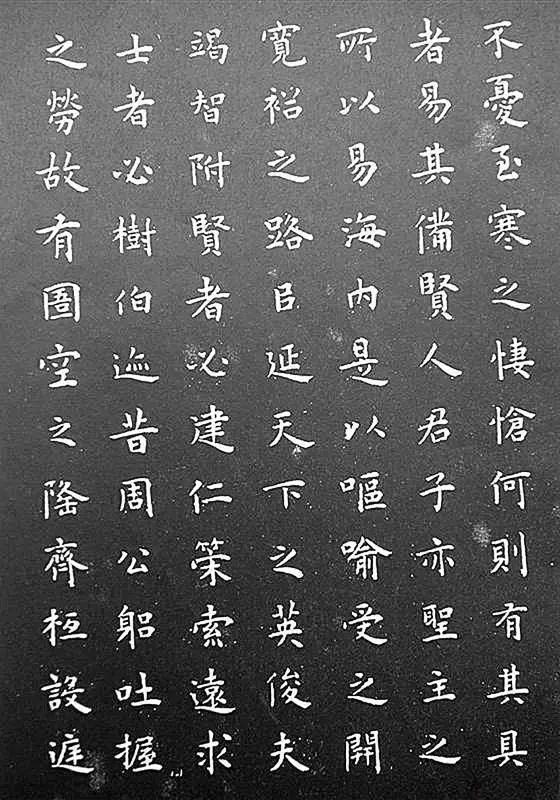 不憂至寒之悽愴何則有其具
者易其備賢人君子亦聖主之
所以易海内是以嘔喻受之開
寬裕之路㠯延天下之英俊夫
竭智附賢者必建仁策索遠求
士者必樹伯迹昔周公躬吐握
之勞故有圄空之隆齊桓設庭